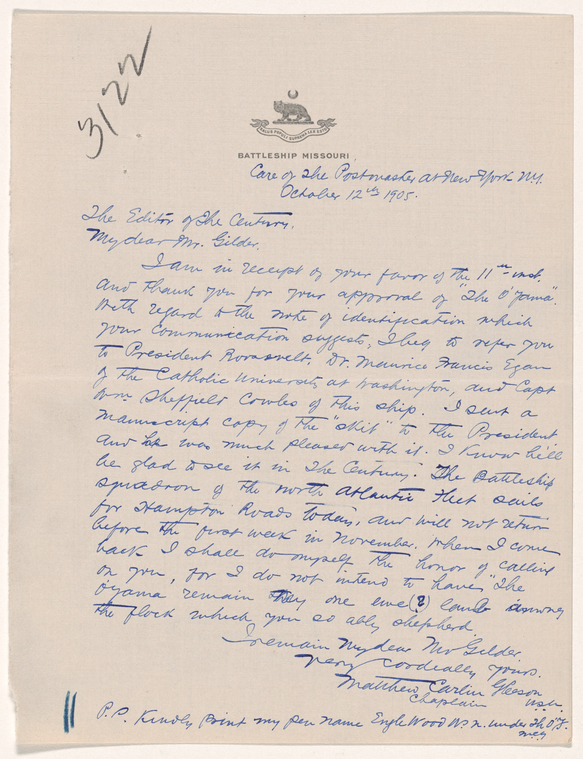 3122
SALUS POPULI SUPREMA LEX ESTO
BATTLESHIP MISSOURI
Care of The Postmaster at New York N.Y.
October 12th 1905.
The Editor of The Century.
My dear Mr. Gilder.
I am in receipt of your favor of the 11th inst.
And thank you for your approval of "The O'Yama".
With regard to the note of identification which
your communication suggests, I beg to refer you
to President Roosevelt, Dr. Maurice Francis Egan
of the Catholic University at Washington, and Capt
Wm Sheffield Cowles of this ship. I sent a
manuscript copy of the "skit" to the President
And he was much pleased with it. I know he'll
be glad to see it in The Century. The Battleship
squadron of the north Atlantic Fleet sails
for Hampton Roads today, and will not return
before the first week in November. When I come
back I shall do myself the honor of calling
on you, for I do not intend to have "The
O'Yama remain my one ewe (?) lamb among
the flock which you so ably shepherd.
I remain My dear Mr Gilder.
Very cordially yours.
Matthew Carlin Gleeson
Chaplain U.S.N.
P.S. Kindly print my pen name Engle Wood under Th "O'Y.
MCG